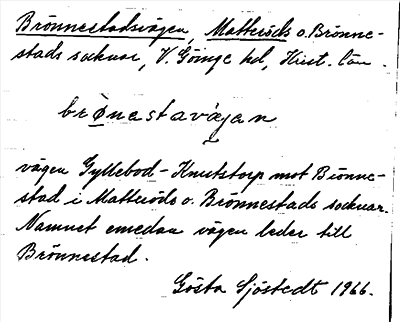 Brönnestadsvägen, Matteröds o. Brönne-
stads socknar, V. Göinge hd, Krist. län.
brønestavägan
vägen Gyllebod - Knutstorp mot Brönne-
stad i Matteröds o. Brönnestads socknar.
Namnet emedan vägen leder till
Brönnestad.
Gösta Sjöstedt 1966.